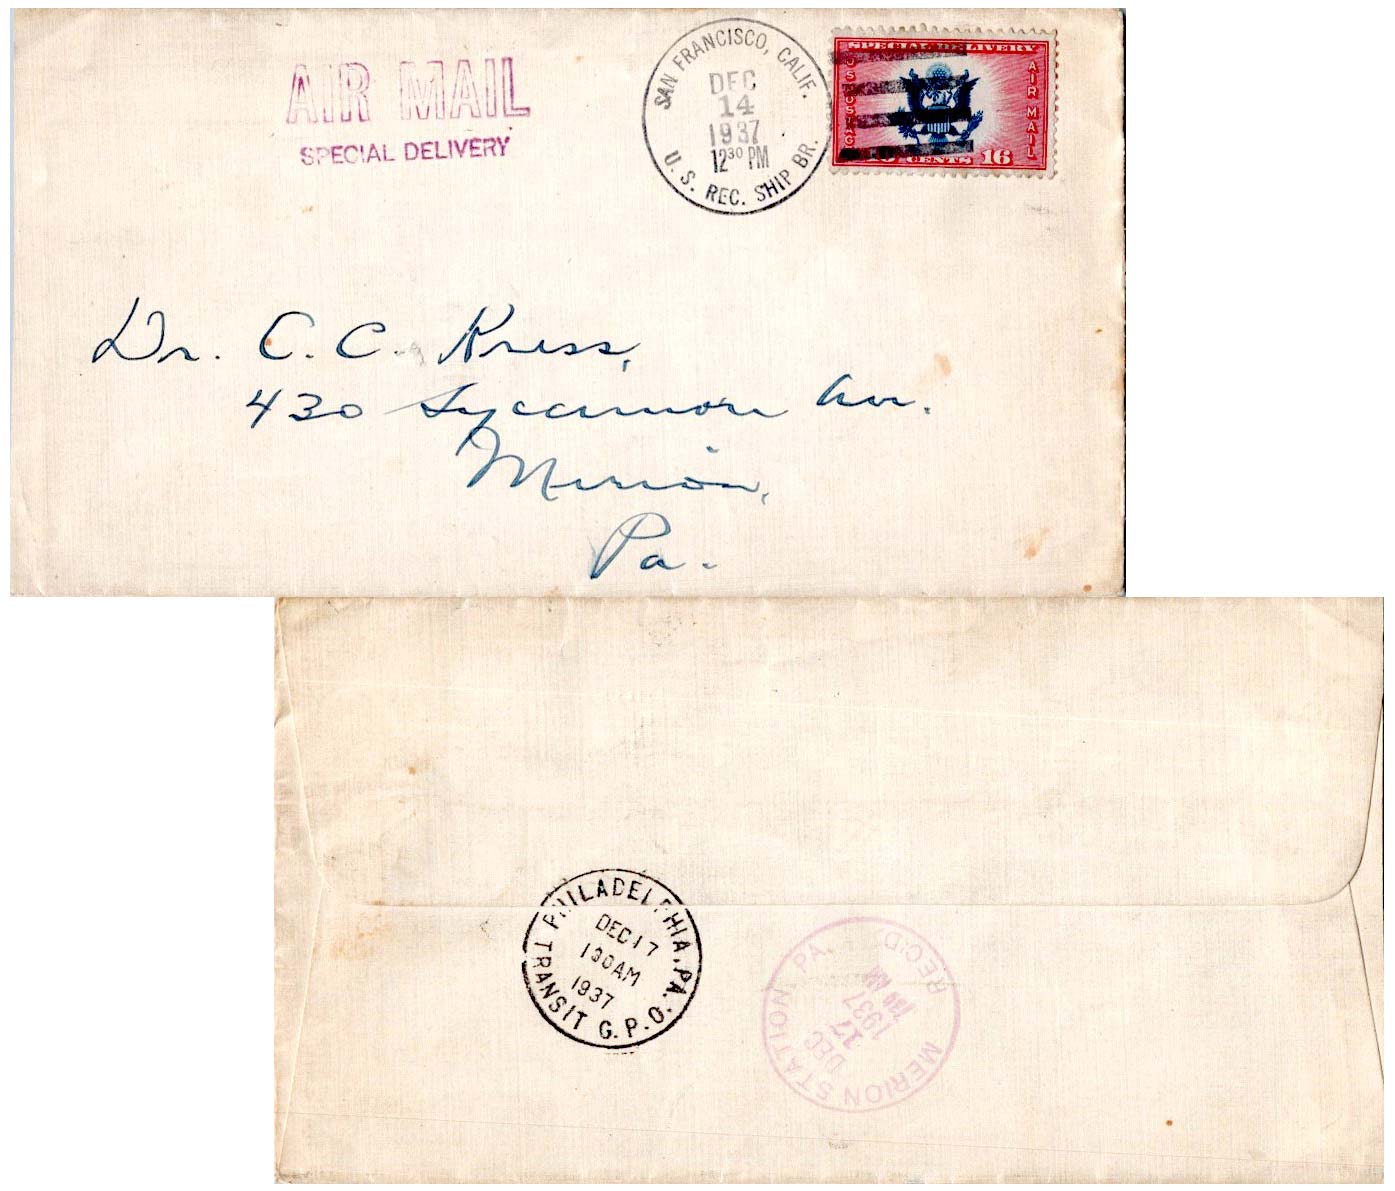 AIR MAIL
SPECIAL DELIVERY
SAN FRANCISCO, CALIF.
DEC
14
1937
12 30 PM
U. S. REC. SHIP BR.
SPECIAL DELIVERY
U S POSTAGE
AIR MAIL
CENTS 16
Dr. C. C. Kress,
430 Sycamore Ave.
Merion,
Pa.
PHILADELPHIA, PA.
DEC 17
1 30 AM
1937
TRANSIT G.P.O.
MERION STATION, PA.
DEC
17
1937
7 30 AM
REC'D